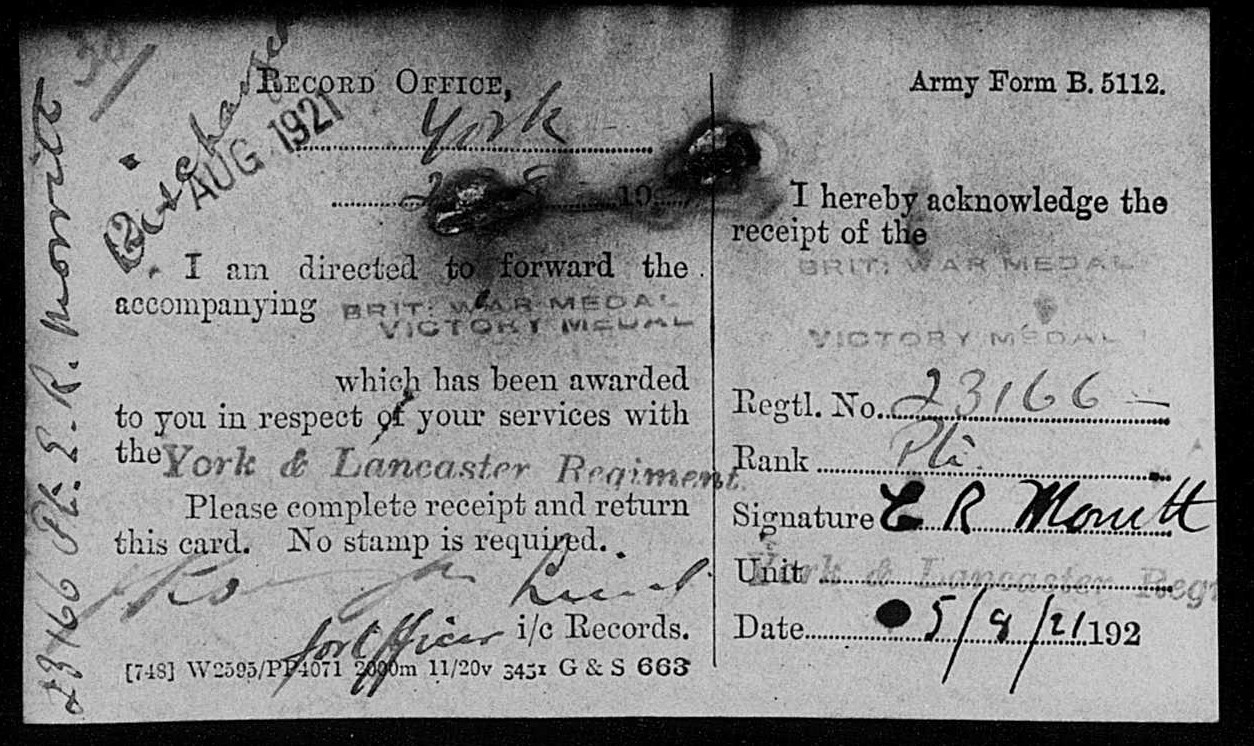 23166 Pte. E. R. Morritt
30/
Discharged
AUG 1921
RECORD OFFICE,
York
2 8 19
I am directed to forward the
accompanying BRIT: WAR MEDAL
VICTORY MEDAL
which has been awarded
to you in respect of your services with
the York & Lancaster Regiment.
Please complete receipt and return
this card. No stamp is required.
for Officer i/c Records.
[748] W2595/PP4071 2000m 11/20v 3451 G & S 663
Army Form B. 5112.
I hereby acknowledge the
receipt of the
BRIT: WAR MEDAL
VICTORY MEDAL
Regtl. No. 23166
Rank Pte.
Signature E R Morritt
Unit York & Lancaster Regt
Date 5/8/21 192